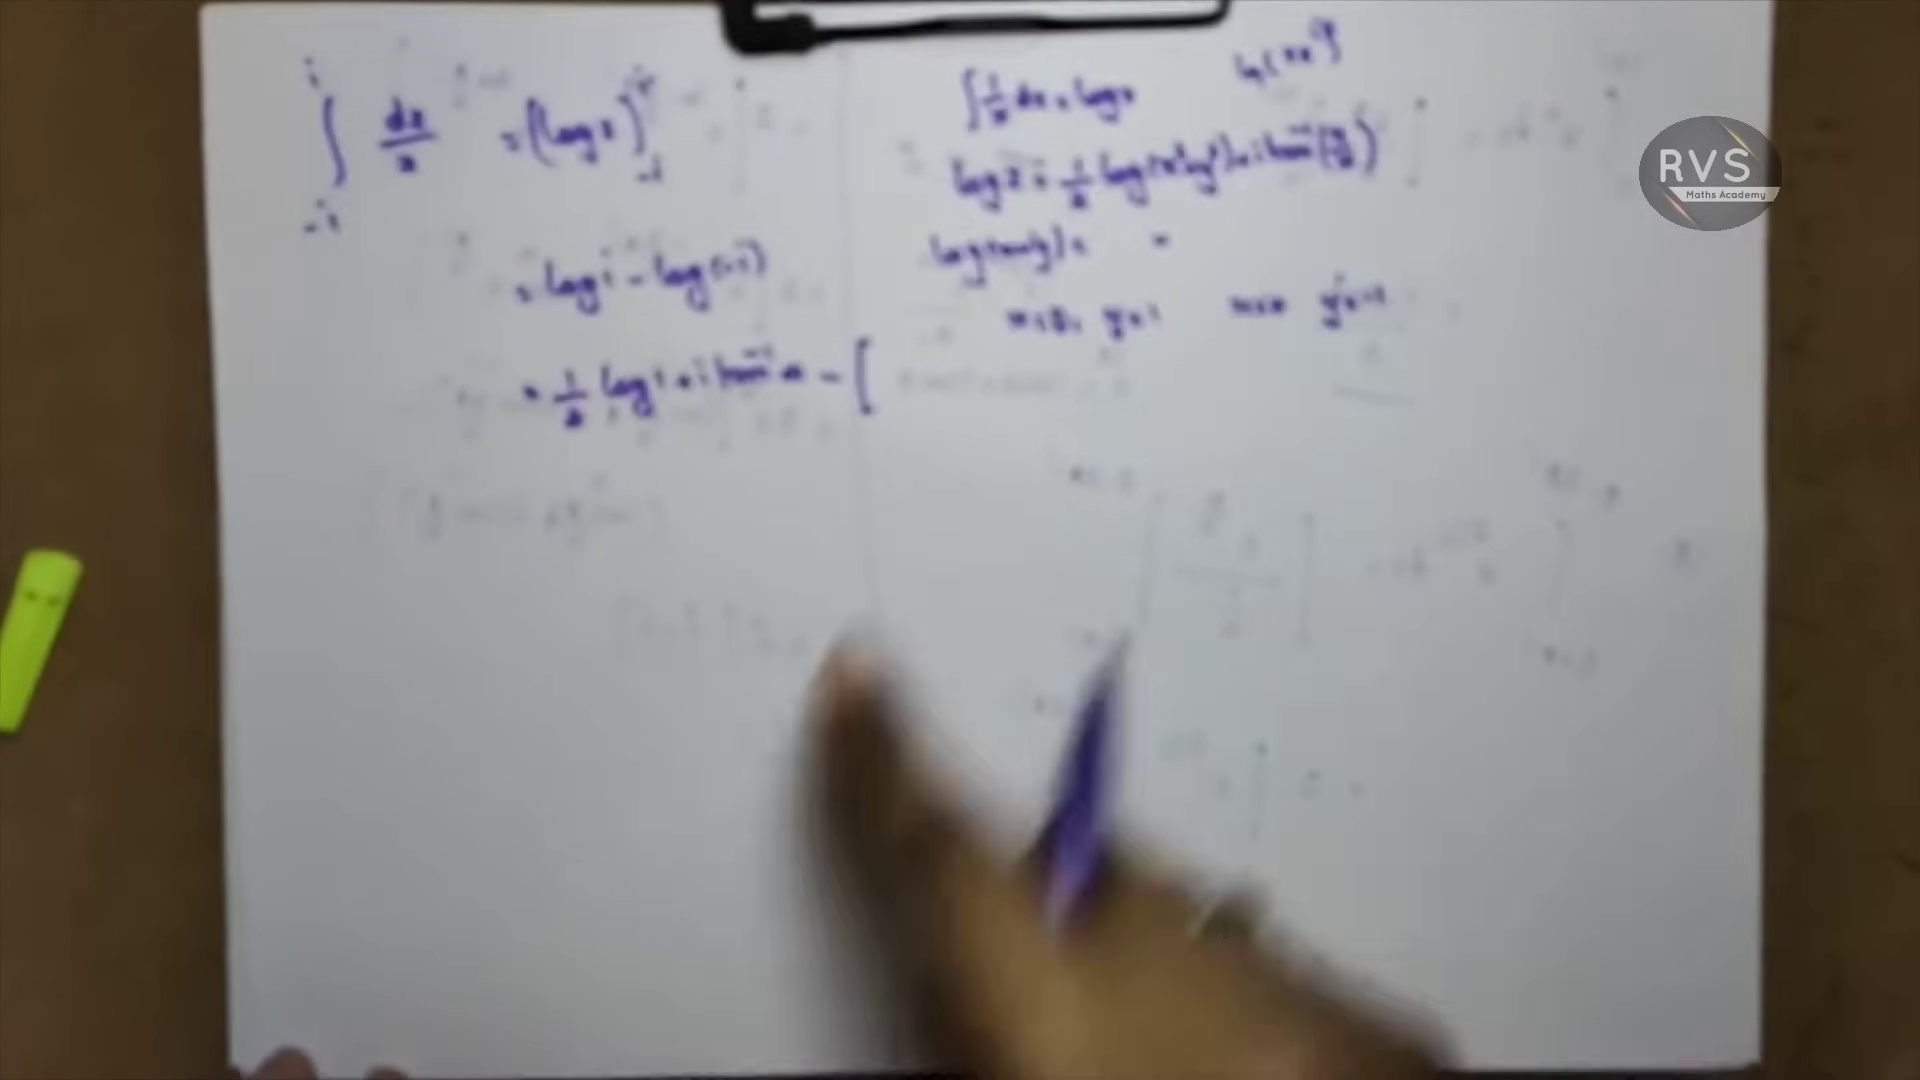 ∫_{-i}^{i} dz/z = (log z)_{-i}^{i}
= log i - log(-i)
= 1/2 log 1 + i tan⁻¹ ∞ - [
∫ 1/z dz = log z
log z = 1/2 log(x²+y²) + i tan⁻¹(y/x)
log(x+iy) =
x=0, y=1 x=0 y=-1
RVS
Maths Academy